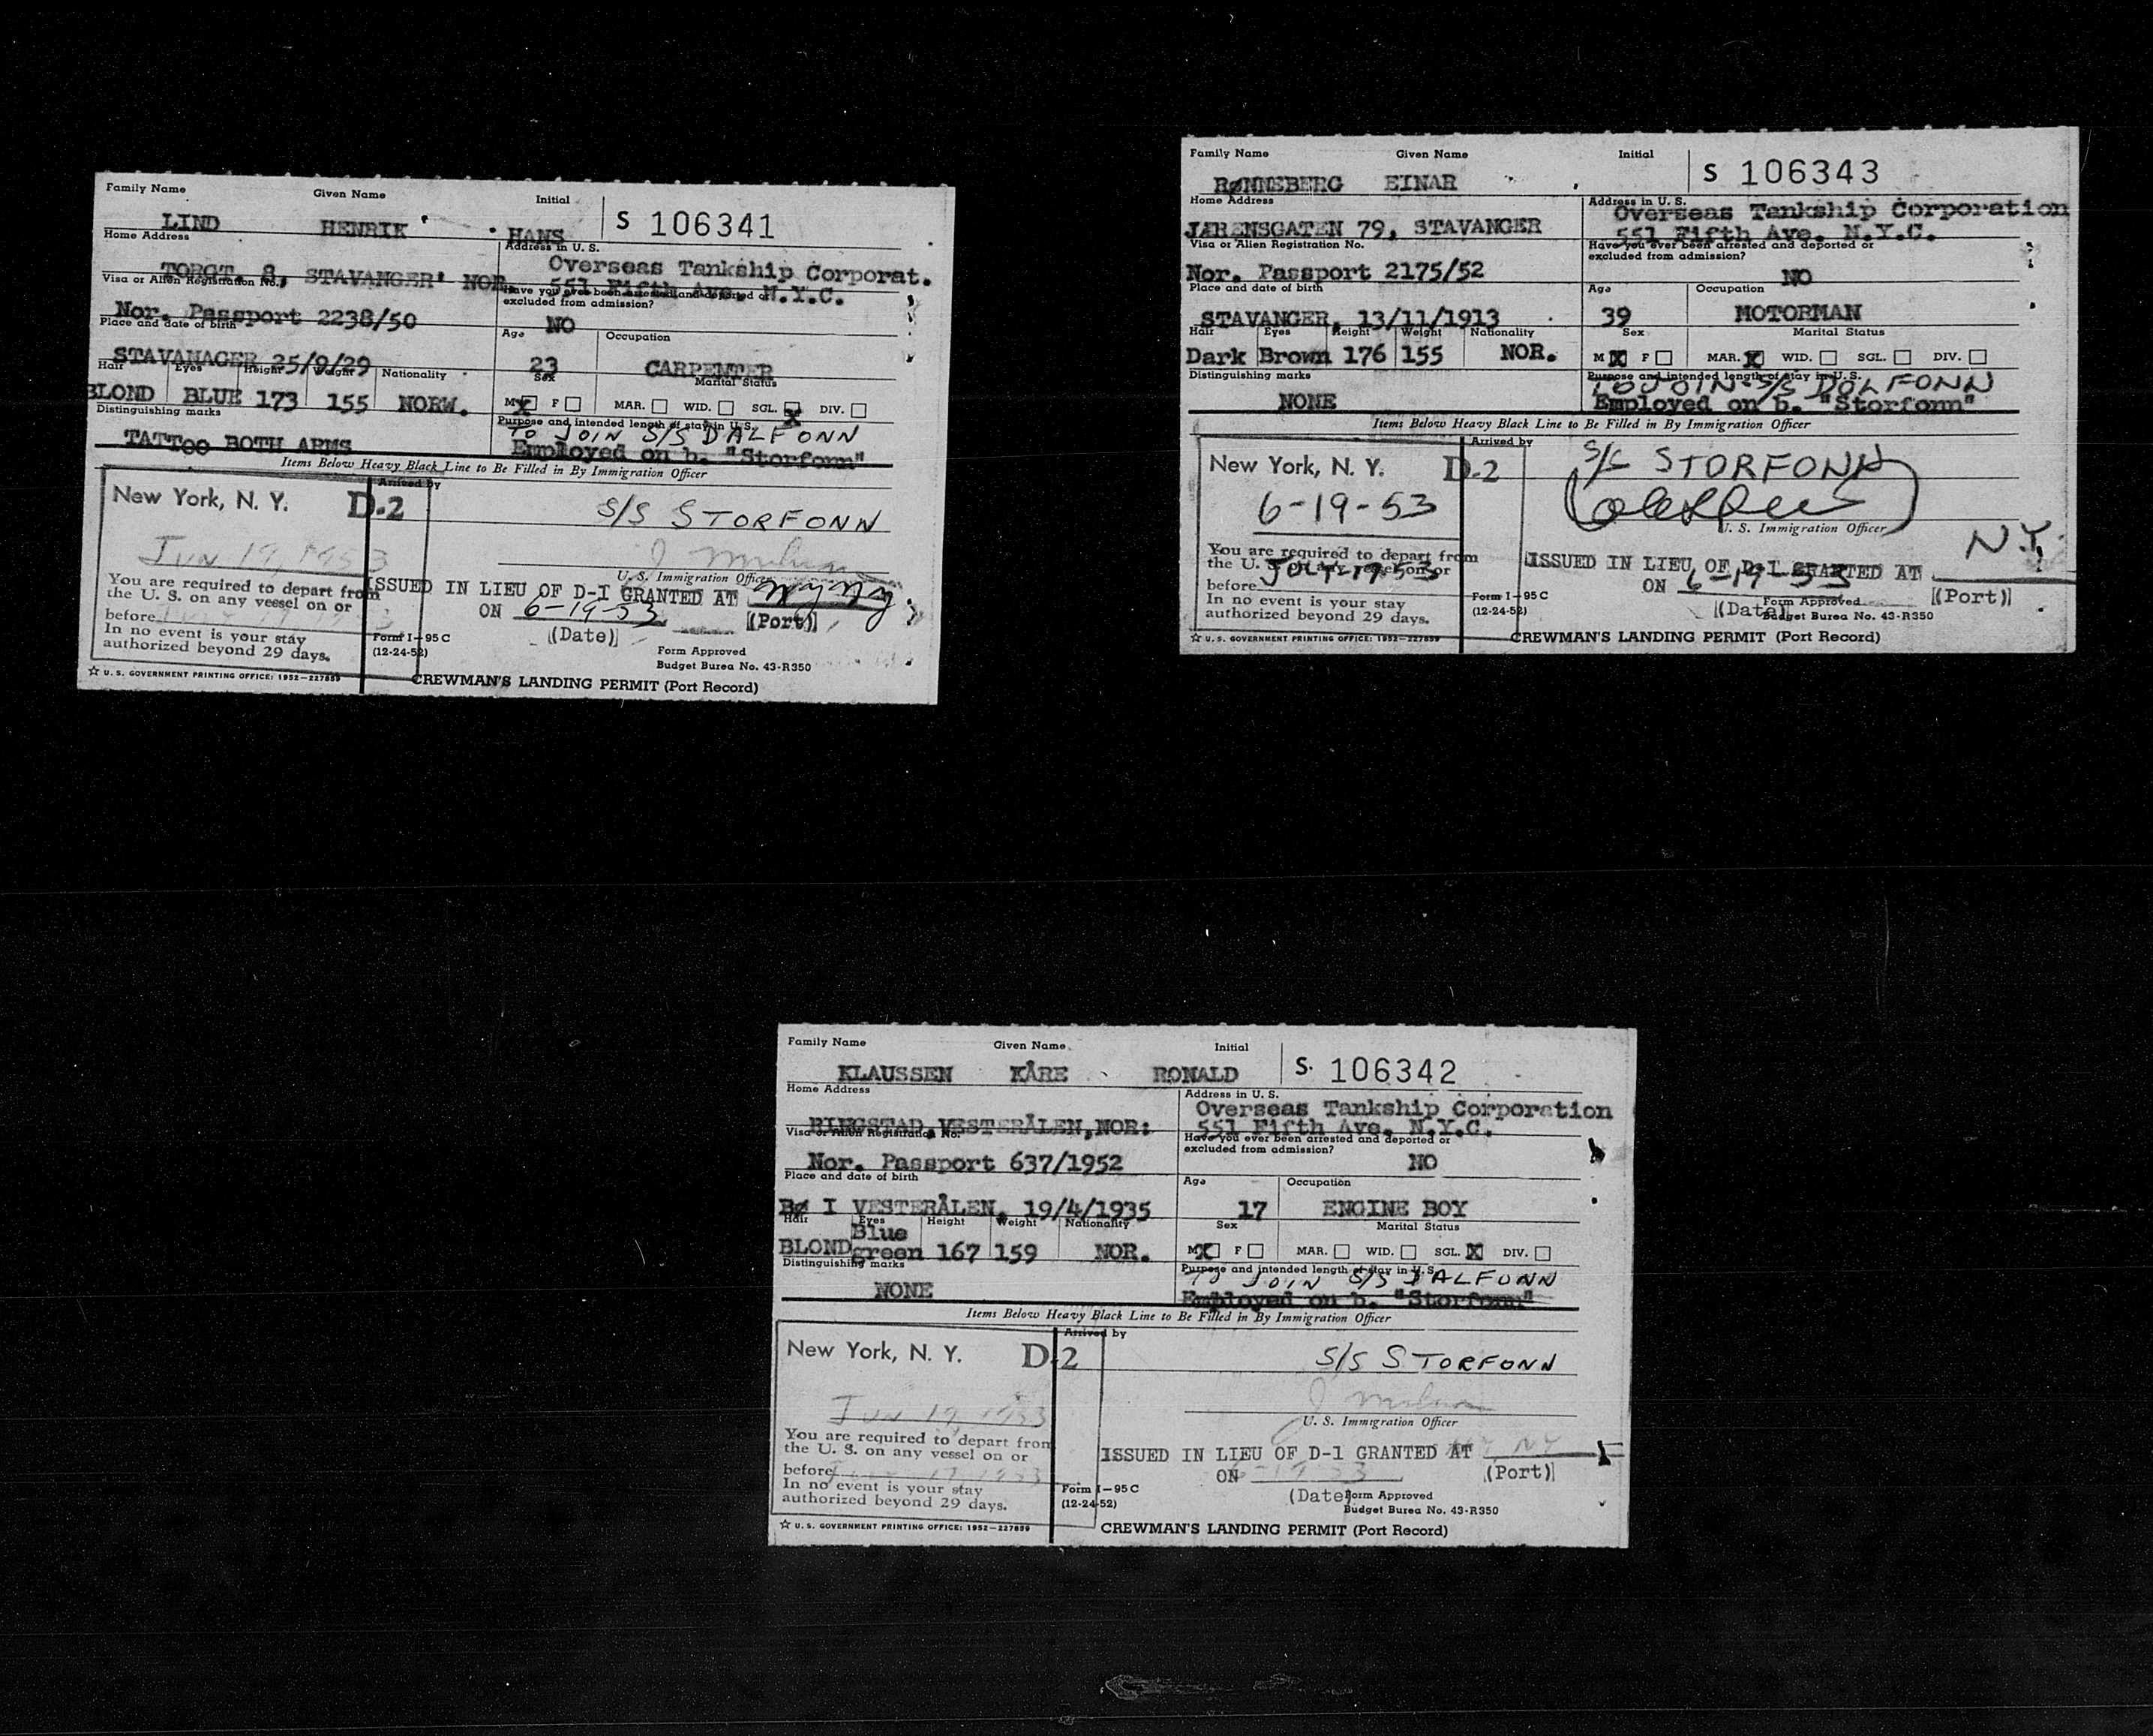 Family Name Given Name Initial
LIND HENRIK HANS S 106341
Home Address Address in U. S.
TORGT. 8, STAVANGER, NOR. Overseas Tankship Corporat.
551 Fifth Ave. N.Y.C.
Visa or Alien Registration No. Have you ever been arrested and deported or
excluded from admission?
Nor. Passport 2238/50 NO
Place and date of birth Age Occupation
STAVANAGER 25/9/29 23 CARPENTER
Hair Eyes Height Weight Nationality Sex Marital Status
BLOND BLUE 173 155 NORW. M X F MAR. WID. SGL. X DIV.
Distinguishing marks Purpose and intended length of stay in U. S.
TO JOIN S/S DALFONN
TATToo BOTH ARMS Employed on b. "Storfonn"
Items Below Heavy Black Line to Be Filled in By Immigration Officer
Arrived by
New York, N. Y. D-2 S/S STORFONN
Jun 19, 1953
U. S. Immigration Officer
You are required to depart from
the U. S. on any vessel on or
before
In no event is your stay
authorized beyond 29 days.
ISSUED IN LIEU OF D-I GRANTED AT NY NY
ON 6-19-53 (Port)
(Date)
Form I-95 C
(12-24-52)
Form Approved
Budget Burea No. 43-R350
☆ U. S. GOVERNMENT PRINTING OFFICE: 1952—227859
CREWMAN'S LANDING PERMIT (Port Record)
Family Name Given Name Initial
RØNNEBERG EINAR S 106343
Home Address Address in U. S.
Overseas Tankship Corporation
JÆRENSGATEN 79, STAVANGER 551 Fifth Ave. N.Y.C.
Visa or Alien Registration No. Have you ever been arrested and deported or
excluded from admission?
Nor. Passport 2175/52 NO
Place and date of birth Age Occupation
STAVANGER, 13/11/1913 39 MOTORMAN
Hair Eyes Height Weight Nationality Sex Marital Status
Dark Brown 176 155 NOR. M X F MAR. X WID. SGL. DIV.
Distinguishing marks Purpose and intended length of stay in U. S.
TO JOIN S/S DALFONN
NONE Employed on b. "Storfonn"
Items Below Heavy Black Line to Be Filled in By Immigration Officer
Arrived by
New York, N. Y. D-2 S/S STORFONN
6-19-53
U. S. Immigration Officer
You are required to depart from
the U. S. on any vessel on or
before
In no event is your stay
authorized beyond 29 days.
N.Y.
ISSUED IN LIEU OF D-I GRANTED AT
ON 6-19-53 (Port)
(Date)
Form I-95 C
(12-24-52)
Form Approved
Budget Burea No. 43-R350
☆ U. S. GOVERNMENT PRINTING OFFICE: 1952—227859
CREWMAN'S LANDING PERMIT (Port Record)
Family Name Given Name Initial
KLAUSSEN KÅRE RONALD S. 106342
Home Address Address in U. S.
Overseas Tankship Corporation
RINGSTAD, VESTERÅLEN, NOR: 551 Fifth Ave. N.Y.C.
Visa or Alien Registration No. Have you ever been arrested and deported or
excluded from admission?
Nor. Passport 637/1952 NO
Place and date of birth Age Occupation
BØ I VESTERÅLEN, 19/4/1935 17 ENGINE BOY
Hair Eyes Height Weight Nationality Sex Marital Status
Blue
BLOND green 167 159 NOR. M X F MAR. WID. SGL. X DIV.
Distinguishing marks Purpose and intended length of stay in U. S.
TO JOIN S/S DALFONN
NONE Employed on b. "Storfonn"
Items Below Heavy Black Line to Be Filled in By Immigration Officer
Arrived by
New York, N. Y. D-2 S/S STORFONN
Jun 19, 1953
U. S. Immigration Officer
You are required to depart from
the U. S. on any vessel on or
before
In no event is your stay
authorized beyond 29 days.
ISSUED IN LIEU OF D-1 GRANTED AT NY, NY
ON 6-19-53 (Port)
(Date)
Form I-95 C
(12-24-52)
Form Approved
Budget Burea No. 43-R350
☆ U. S. GOVERNMENT PRINTING OFFICE: 1952—227859
CREWMAN'S LANDING PERMIT (Port Record)